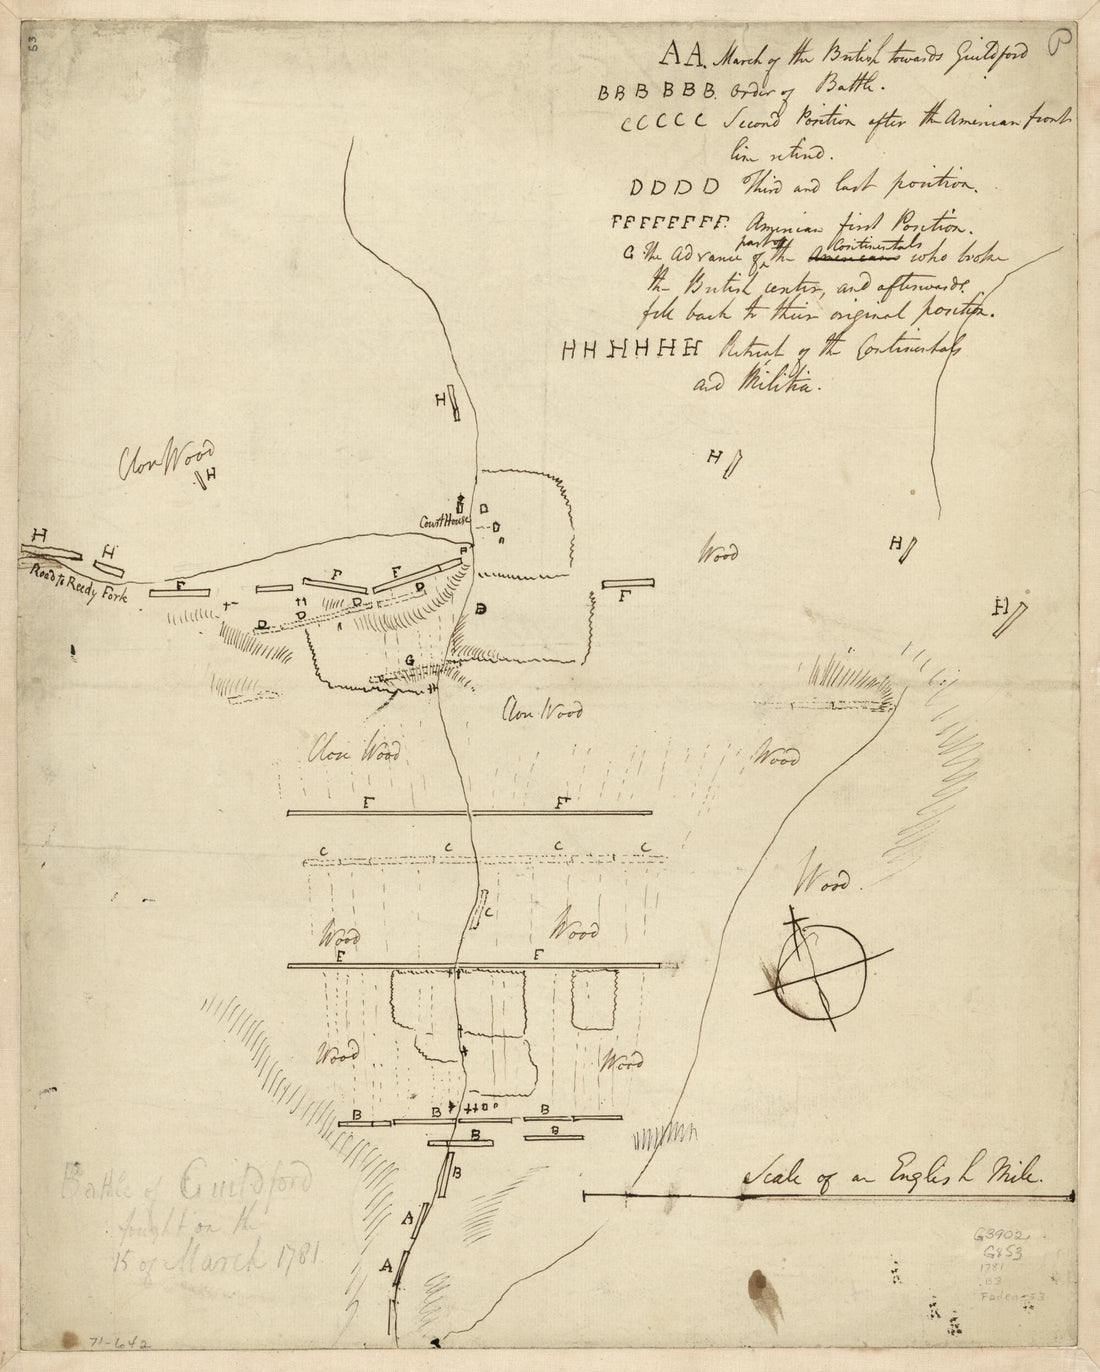 53
AA. March of the British towards Guildford
BB B B B B. Order of Battle.
C C C C C Second Position after the American front
line retired.
D D D D Third and last position.
F F F F F F F F. American first Position.
G The Advance of part of the Americans Continentals who broke
the British center, and afterwards
fell back to their original position.
H H H H H H Retreat of the Continentals
and Militia.
H
Close Wood
H
H
Court House
Wood
H
H
H
Road to Reedy Fork
F
F
F
F
F
H
D
D
D
D
D
G
Close Wood
Close Wood
Wood
F
F
C
C
C
C
Wood
C
Wood
Wood
F
F
Wood
Wood
B
B
B
B
B
B
A
A
Scale of an English Mile.
Battle of Guildford
fought on the
15 of March 1781.
G3902
G8S3
1781
.B3
Faden 53
71-642